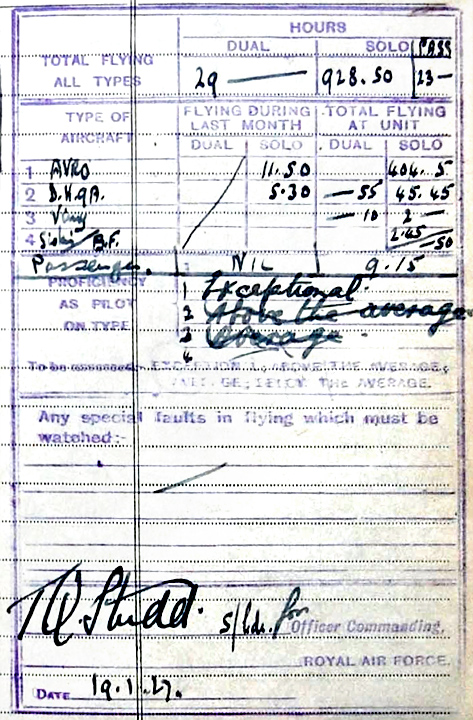 HOURS
DUAL SOLO PASS
TOTAL FLYING
ALL TYPES 29 — 928.50 23—
TYPE OF AIRCRAFT FLYING DURING LAST MONTH TOTAL FLYING AT UNIT
DUAL SOLO DUAL SOLO
1 AVRO 11.50 404.5
2 D.H.9A. 5.30 — 55 45.45
3 — 10 2 —
4 B.F. 2.45 — 50
Passenger. NIL 9.15
PROFICIENCY AS PILOT ON TYPE
1 Exceptional.
2 Above the average
3 Average
4
To be assessed: EXCEPTIONAL; ABOVE THE AVERAGE;
AVERAGE; BELOW THE AVERAGE.
Any special faults in flying which must be
watched:-
Studd. S/Ldr. for Officer Commanding,
ROYAL AIR FORCE.
DATE 19.1.27.